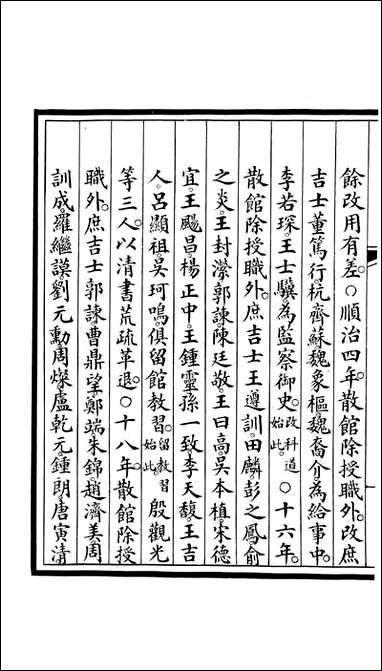 餘改用有差。○順治四年散館除授職外。改庶
吉士董篤行杭齊蘇魏象樞魏裔介為給事中。
李若琛。王士驥為監察御史。改科道始此。○十六年。
散館除授職外。庶吉士王遵訓。田麟。彭之鳳。俞
之炎。王封濴。郭諫。陳廷敬。王曰高。吳本植。宋德
宜。王颺昌。楊正中。王鍾靈。孫一致。李天馥。王吉
人。呂顯祖。吳珂鳴。俱留館教習。留教習始此。殷觀光
等三人。以清書荒疏革退。○十八年。散館除授
職外。庶吉士郭諫。曹鼎望。鄭端。朱錦。趙濟美。周
訓成。羅繼謨。劉元勳。周燦。盧乾元。鍾朗。唐寅清